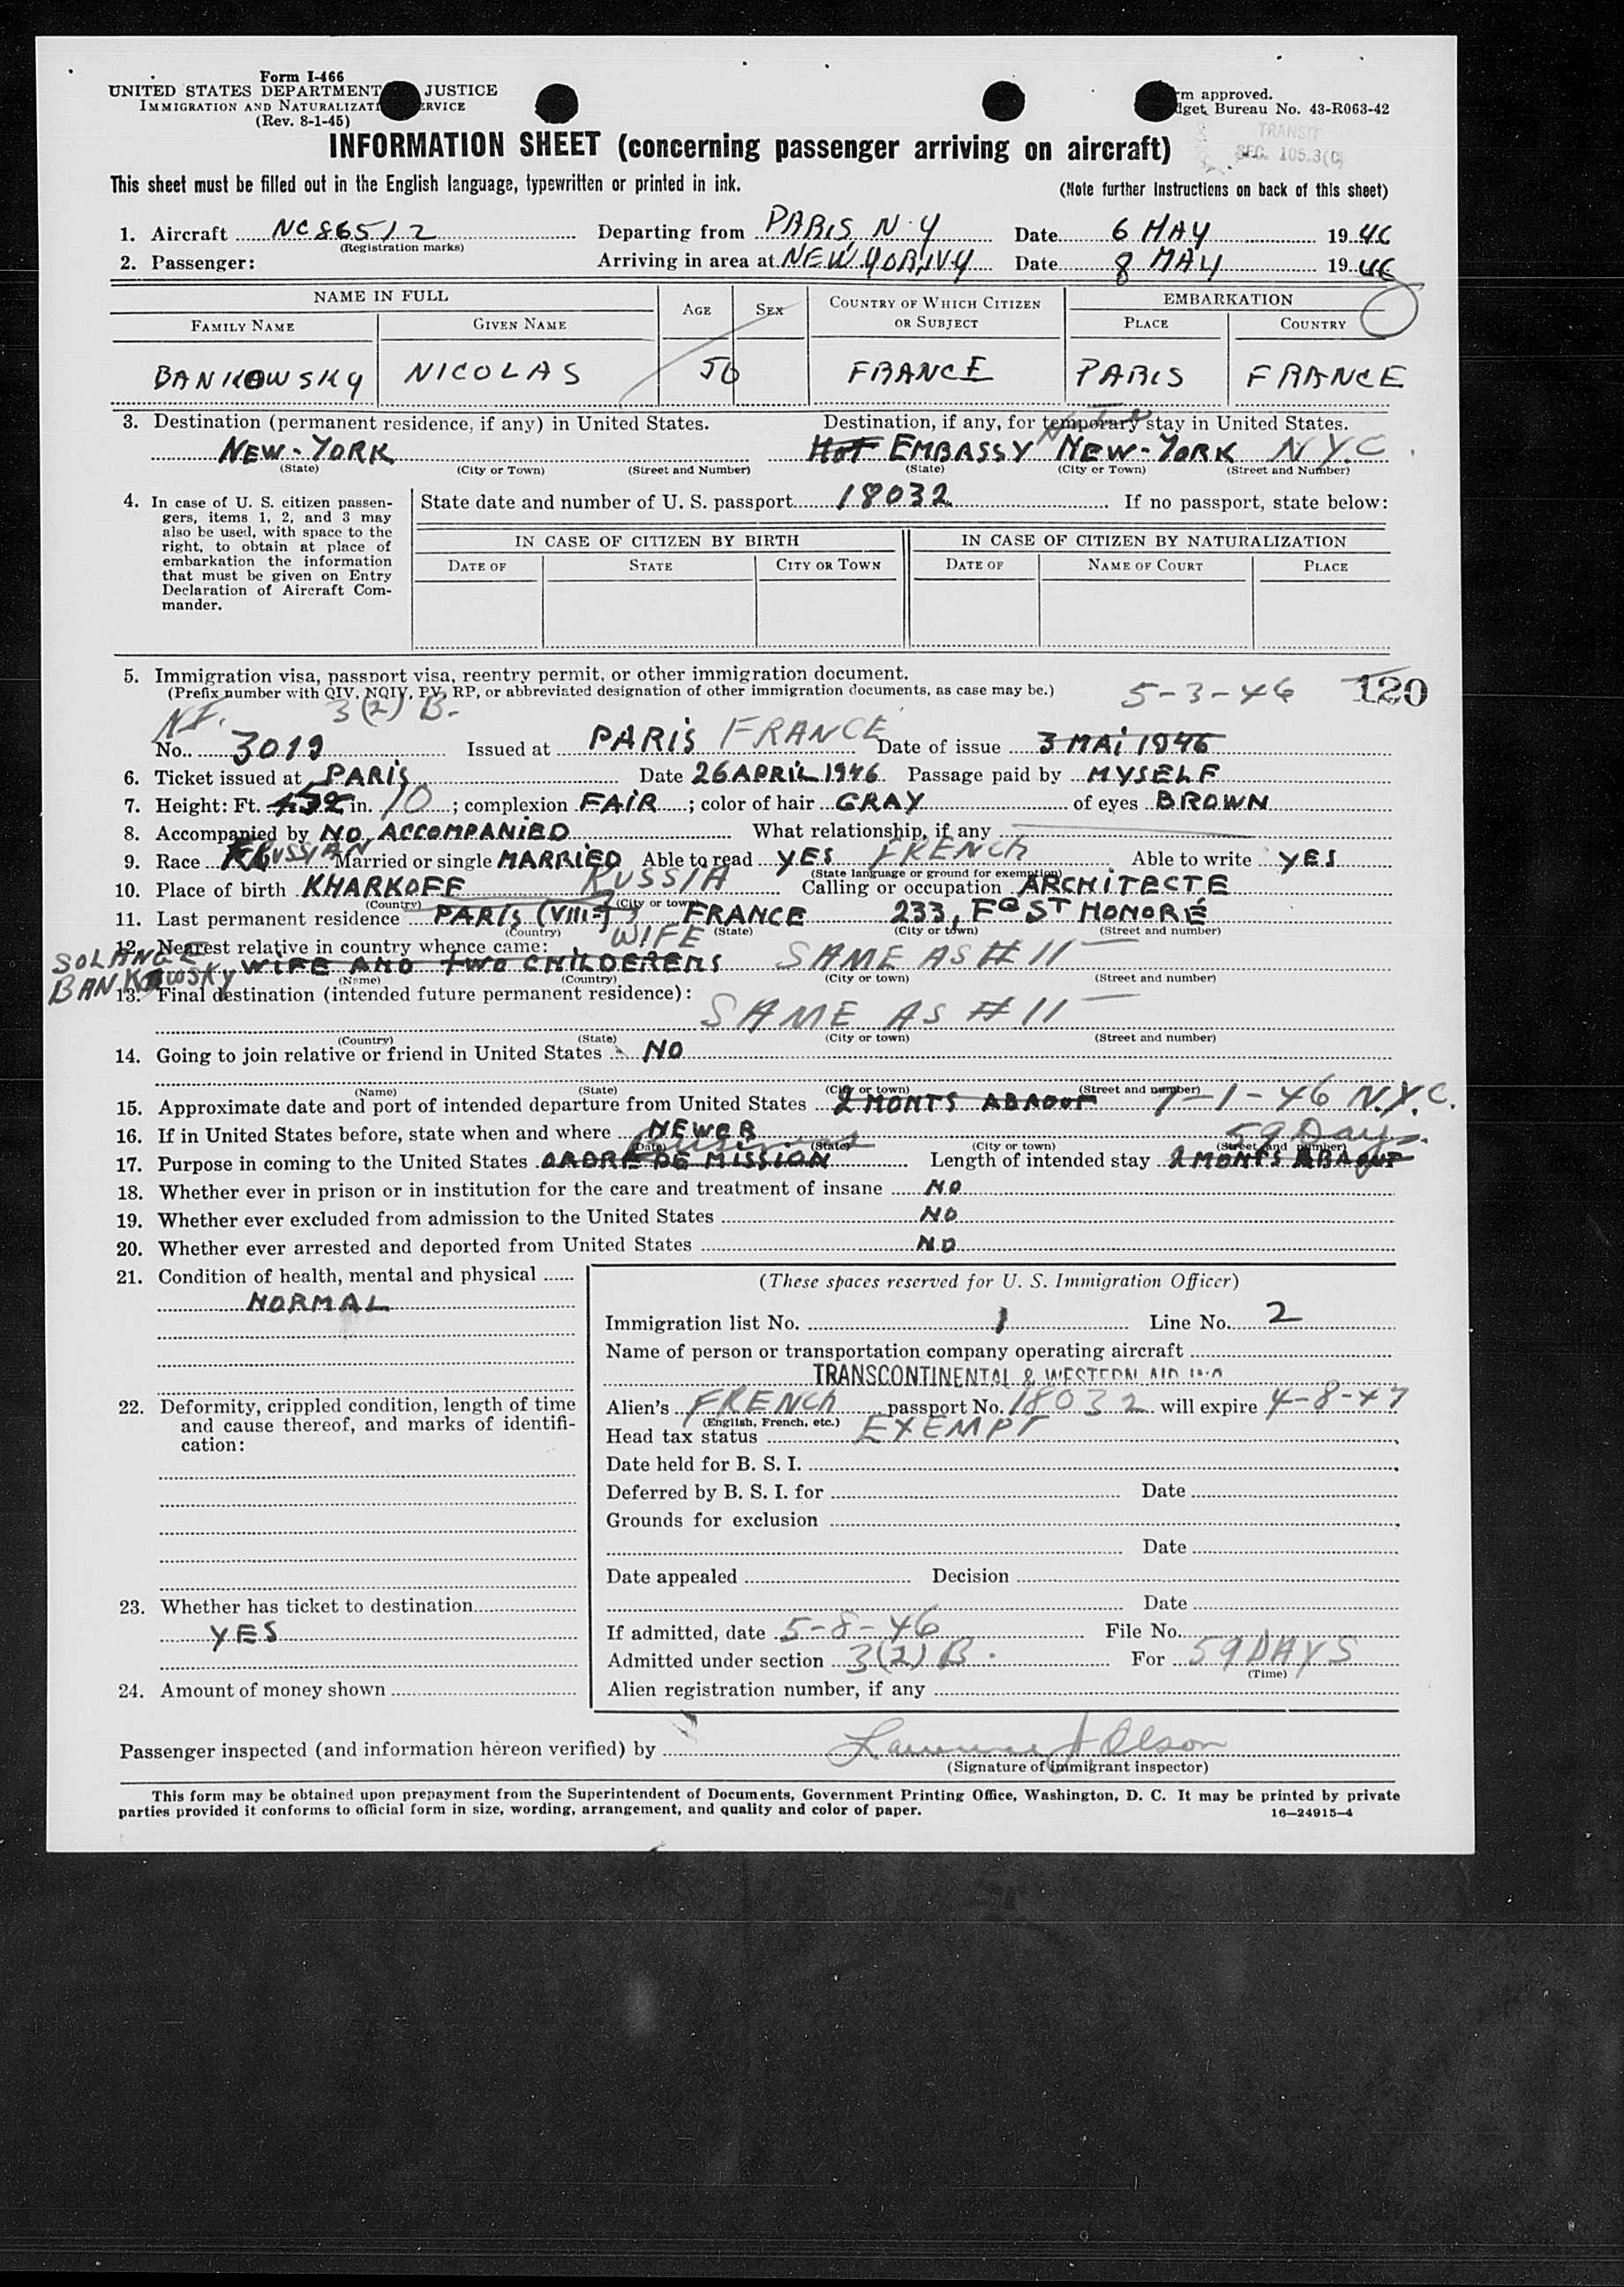 Form I-466
UNITED STATES DEPARTMENT JUSTICE
IMMIGRATION AND NATURALIZATI RVICE
(Rev. 8-1-45)
rm approved.
dget Bureau No. 43-R063-42
TRANSIT
SEC. 105.3(C)
INFORMATION SHEET (concerning passenger arriving on aircraft)
This sheet must be filled out in the English language, typewritten or printed in ink.
(Note further instructions on back of this sheet)
1. Aircraft NC86512 Departing from PARIS, N.Y Date 6 MAY 1946
(Registration marks)
2. Passenger: Arriving in area at NEW YORK, NY Date 8 MAY 1946
NAME IN FULL AGE SEX COUNTRY OF WHICH CITIZEN OR SUBJECT EMBARKATION
FAMILY NAME GIVEN NAME PLACE COUNTRY
BANKOWSKY NICOLAS 50 FRANCE PARIS FRANCE
3. Destination (permanent residence, if any) in United States. Destination, if any, for temporary stay in United States.
NEW-YORK HOT EMBASSY NEW-YORK N.Y.C.
(State) (City or Town) (Street and Number) (State) (City or Town) (Street and Number)
4. In case of U. S. citizen passen-
gers, items 1, 2, and 3 may
also be used, with space to the
right, to obtain at place of
embarkation the information
that must be given on Entry
Declaration of Aircraft Com-
mander.
State date and number of U. S. passport 18032 If no passport, state below:
IN CASE OF CITIZEN BY BIRTH IN CASE OF CITIZEN BY NATURALIZATION
DATE OF STATE CITY OR TOWN DATE OF NAME OF COURT PLACE
5. Immigration visa, passport visa, reentry permit, or other immigration document.
(Prefix number with QIV, NQIV, PV, RP, or abbreviated designation of other immigration documents, as case may be.) 5-3-46 120
3(2) B.
No. 3019 Issued at PARIS FRANCE Date of issue 3 MAI 1946
6. Ticket issued at PARIS Date 26 APRIL 1946 Passage paid by MYSELF
7. Height: Ft. 5 in. 10; complexion FAIR; color of hair GRAY of eyes BROWN
8. Accompanied by NO ACCOMPANIED What relationship, if any
9. Race RUSSIAN Married or single MARRIED Able to read YES FRENCH Able to write YES
(State language or ground for exemption)
10. Place of birth KHARKOFF RUSSIA Calling or occupation ARCHITECTE
(Country) (City or town)
11. Last permanent residence PARIS (VIII) FRANCE 233, Fg ST HONORÉ
(Country) (State) (City or town) (Street and number)
12. Nearest relative in country whence came: WIFE
SOLANGE BANKOWSKY WIFE AND TWO CHILDERENS SAME AS #11
(Name) (Country) (City or town) (Street and number)
13. Final destination (intended future permanent residence):
SAME AS #11
(Country) (State) (City or town) (Street and number)
14. Going to join relative or friend in United States NO
(Name) (State) (City or town) (Street and number)
15. Approximate date and port of intended departure from United States 2 MONTS ABAOUT 7-1-46 N.Y.C.
16. If in United States before, state when and where NEWER
(Date) (State) (City or town) (Street and number)
business 59 Days.
17. Purpose in coming to the United States ORDRE DE MISSION Length of intended stay 2 MONTS ABAOUT
18. Whether ever in prison or in institution for the care and treatment of insane NO
19. Whether ever excluded from admission to the United States NO
20. Whether ever arrested and deported from United States NO
21. Condition of health, mental and physical
NORMAL
22. Deformity, crippled condition, length of time
and cause thereof, and marks of identifi-
cation:
23. Whether has ticket to destination
YES
24. Amount of money shown
(These spaces reserved for U. S. Immigration Officer)
Immigration list No. 1 Line No. 2
Name of person or transportation company operating aircraft
TRANSCONTINENTAL & WESTERN AIR INC
Alien's FRENCH passport No. 18032 will expire 4-8-47
(English, French, etc.)
Head tax status EXEMPT
Date held for B. S. I.
Deferred by B. S. I. for Date
Grounds for exclusion
Date
Date appealed Decision
Date
If admitted, date 5-8-46 File No.
Admitted under section 3(2) B. For 59 DAYS
(Time)
Alien registration number, if any
Passenger inspected (and information hereon verified) by Lawrence J Olson
(Signature of immigrant inspector)
This form may be obtained upon prepayment from the Superintendent of Documents, Government Printing Office, Washington, D. C. It may be printed by private
parties provided it conforms to official form in size, wording, arrangement, and quality and color of paper. 16—24915-4